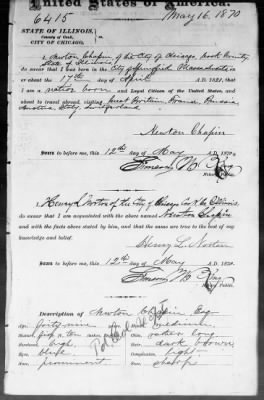 United States of America.
6415
May 16, 1870
STATE OF ILLINOIS,
County of Cook,
CITY OF CHICAGO.
I, Newton Chapin of the City of Chicago, Cook County,
State of Illinois
do swear that I was born in the City of Springfield Massachusetts
or about the 17th day of April A.D. 1821, that I
am a native born and Legal Citizen of the United States, and
about to travel abroad, visiting Great Britain, France, Prussia
Austria Italy, Switzerland
Newton Chapin
Sworn to before me, this 12th day of May A.D. 1870.
Notary Public.
I, Henry L. Norton of the City of Chicago Co. of Illinois,
do swear that I am acquainted with the above named Newton Chapin
and with the facts above stated by him, and that the same are true to the best of my
knowledge and belief.
Henry L. Norton
Sworn to before me, this 12th day of May A.D. 1870.
Notary Public.
Description of Newton Chapin Esq
Age, forty-nine medium
five ft ten Chin, rather long
high Hair, dark brown
Eyes, blue Complexion, light
Nose, prominent Face, sharp